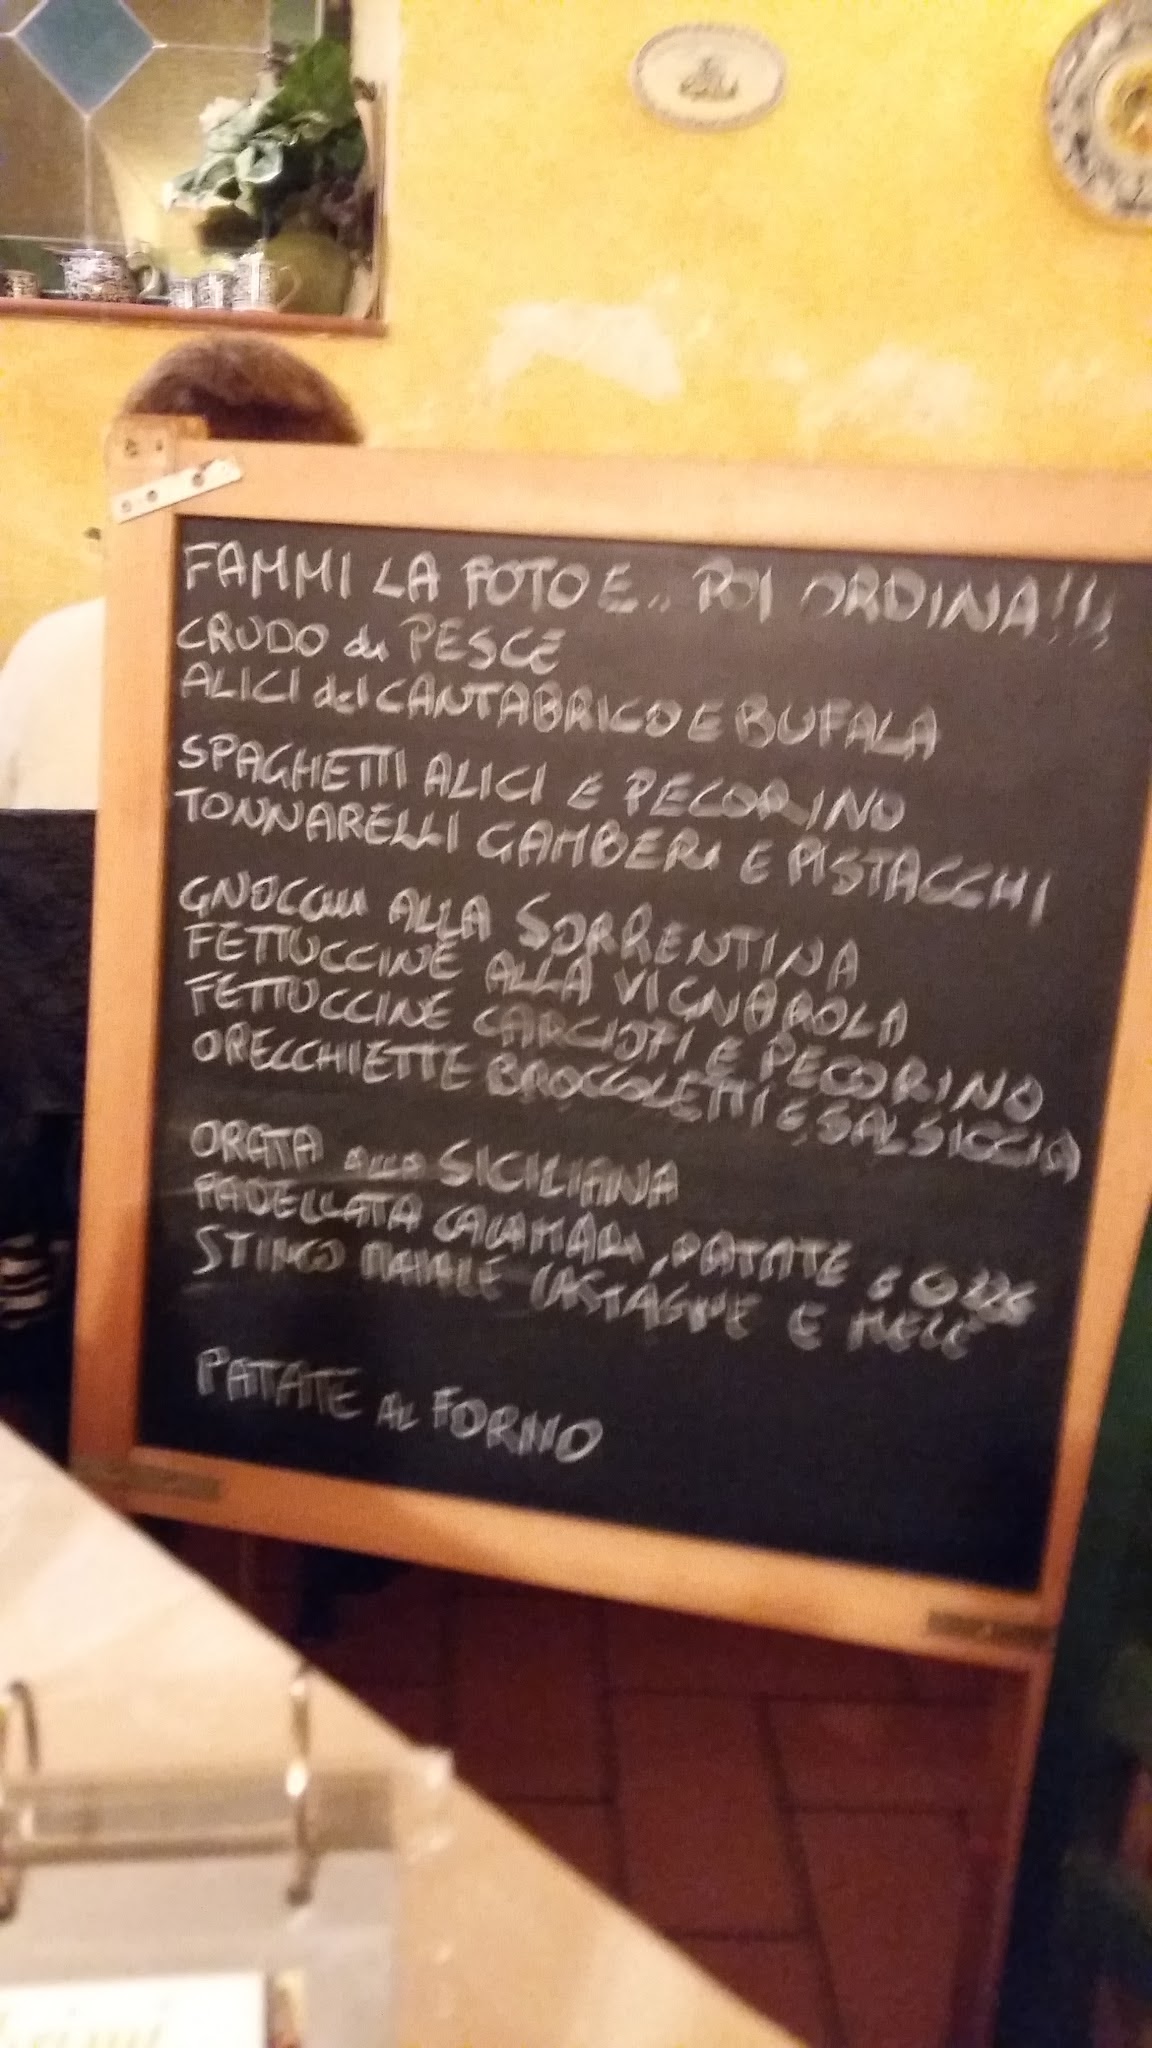 FAMMI LA FOTO E.. POI ORDINA!!!
CRUDO di PESCE
ALICI del CANTABRICO E BUFALA
SPAGHETTI ALICI E PECORINO
TONNARELLI GAMBERI E PISTACCHI
GNOCCHI ALLA SORRENTINA
FETTUCCINE ALLA VIGNAROLA
FETTUCCINE CARCIOFI E PECORINO
ORECCHIETTE BROCCOLETTI E SALSICCIA
ORATA ALLA SICILIANA
PADELLATA CALAMARI, PATATE E COZZE
STINCO MAIALE CASTAGNE E MELE
PATATE AL FORNO